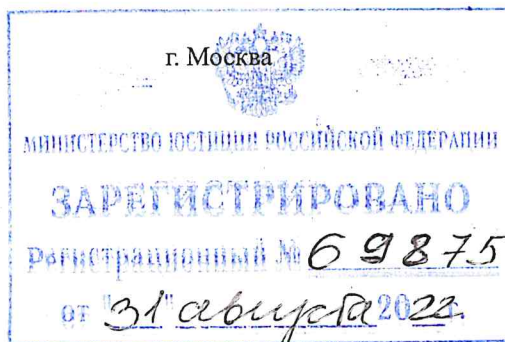 г. Москва
МИНИСТЕРСТВО ЮСТИЦИИ РОССИЙСКОЙ ФЕДЕРАЦИИ
ЗАРЕГИСТРИРОВАНО
Регистрационный № 69875
от "31" августа 2022.